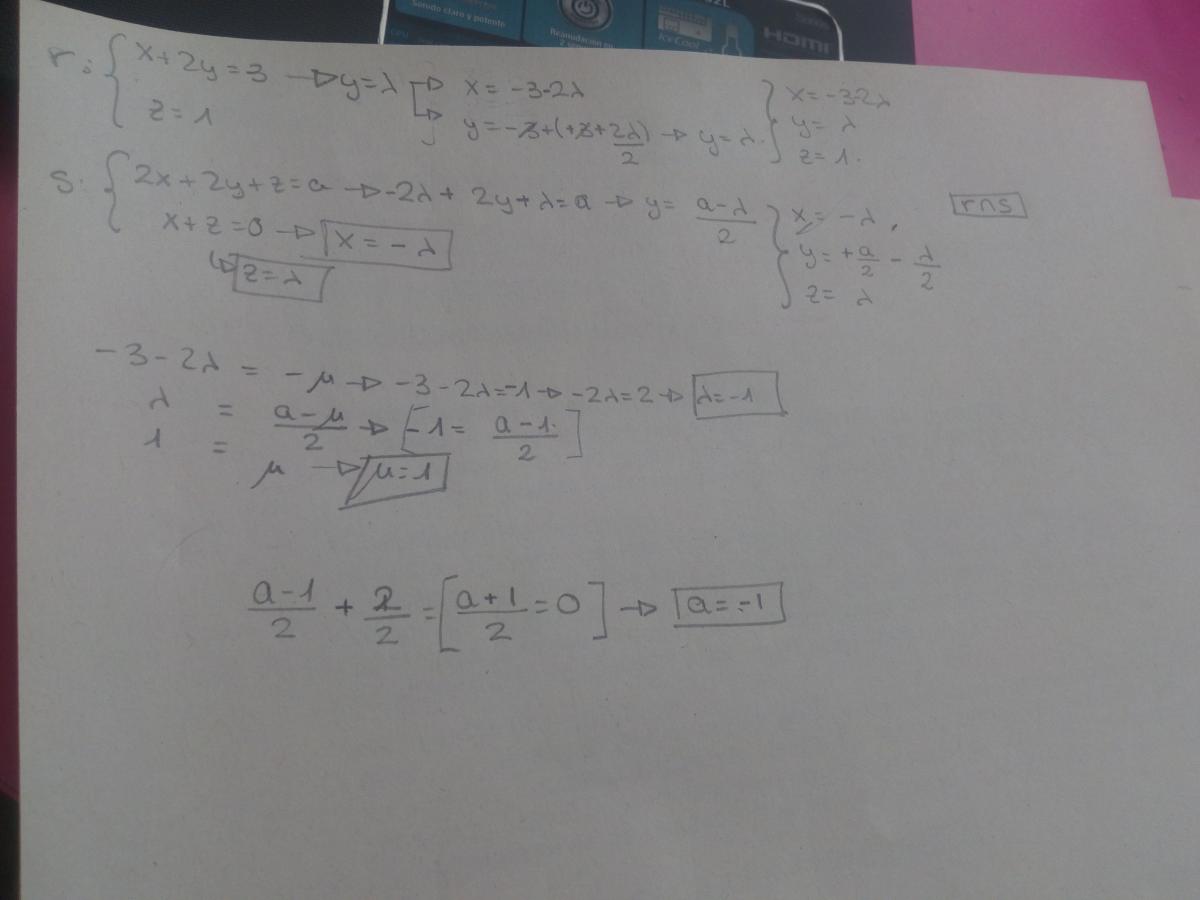 Sonido claro y potente
Reanudación en
IceCool
HDMI
r: { x + 2y = 3 → y = λ → x = -3-2λ } x = -3-2λ
z = 1 → y = -3+(+3+2λ)/2 → y = λ. y = λ
z = 1.
s: { 2x + 2y + z = a → -2λ + 2y + λ = a → y = (a-λ)/2 } x = -λ, r∩s
x + z = 0 → x = -λ y = +a/2 - λ/2
↳ z = λ z = λ
-3 - 2λ = -μ → -3 - 2λ = -1 → -2λ = 2 → λ = -1
λ = (a-μ)/2 → [-1 = (a-1)/2]
1 = μ → μ = 1
(a-1)/2 + 2/2 = [(a+1)/2 = 0] → a = -1